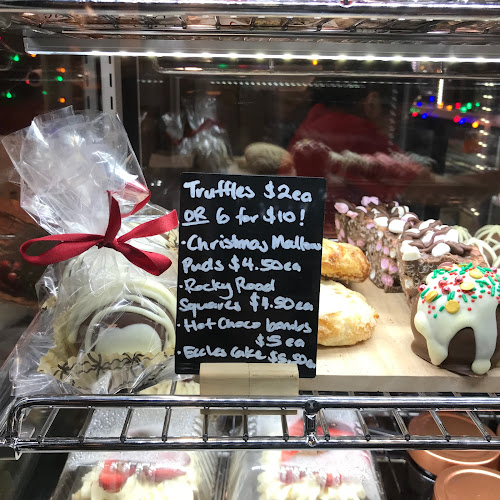 Truffles $2ea
OR 6 for $10!
·Christmas Mallow
Puds $4.50ea
·Rocky Road
Squares $4.50ea
·Hot Choco bombs
$5 ea
·Eccles Cake $5.50ea